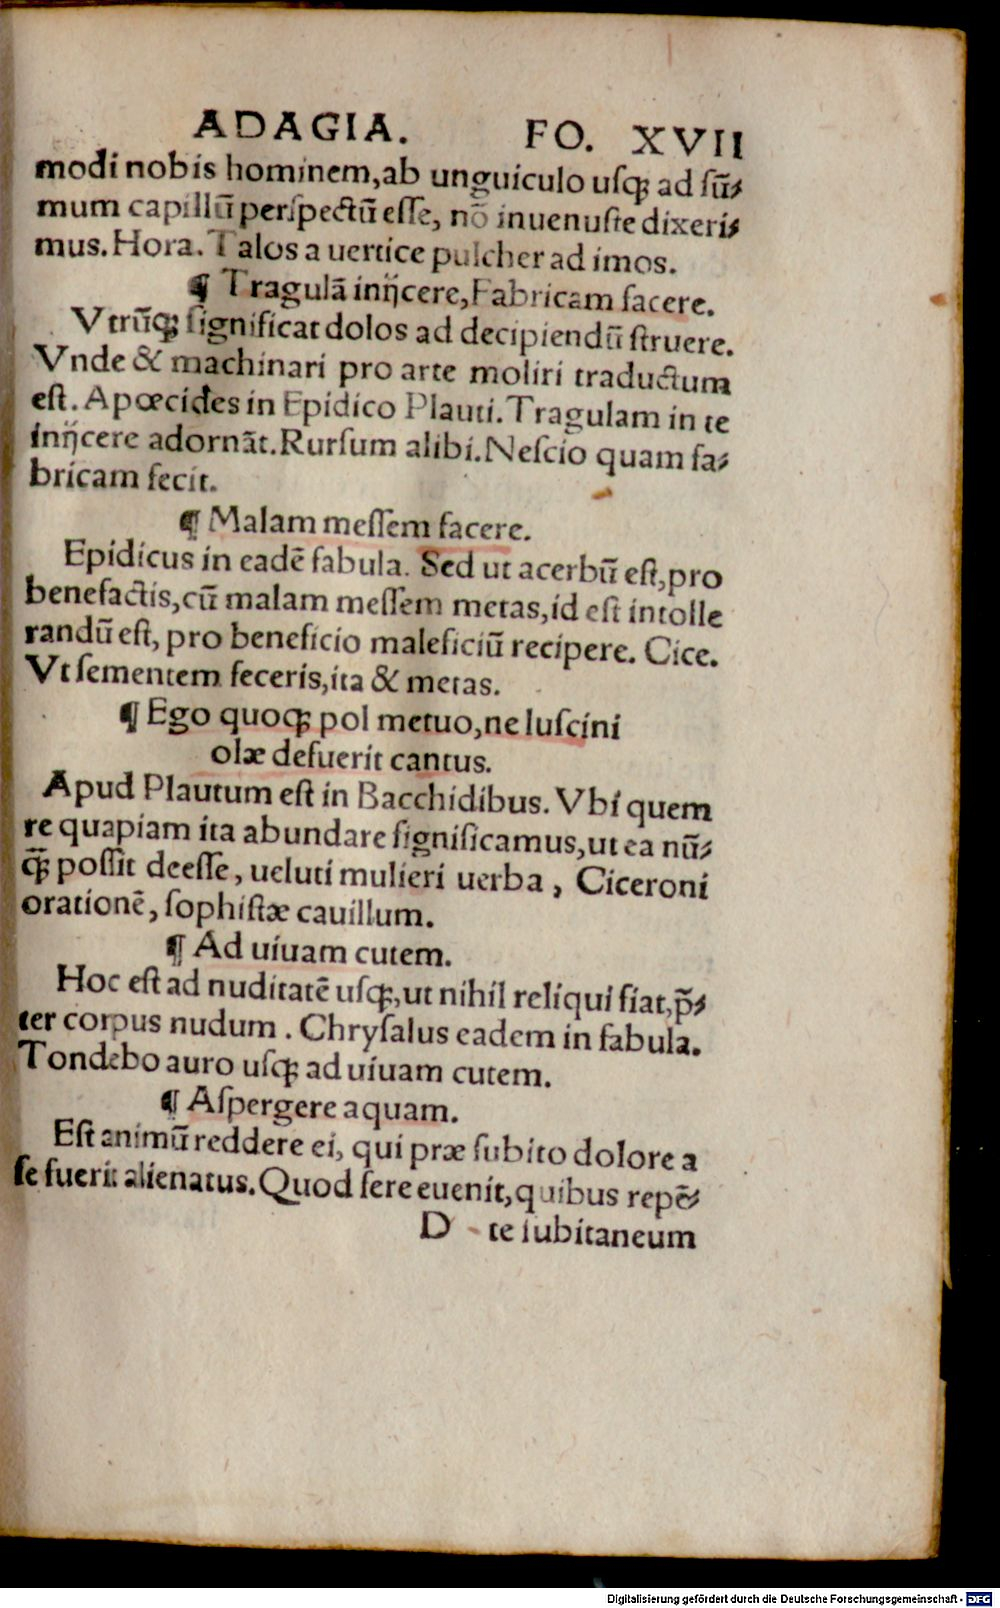 ADAGIA. FO. XVII
modi nobis hominem,ab unguiculo uſqꝫ ad ſũ⸗
mum capillũ perſpectũ eſſe, nõ inuenuſte dixeri⸗
mus. Hora. Talos a uertice pulcher ad imos.
¶ Tragulã inijcere, Fabricam facere.
Vtrũqꝫ ſignificat dolos ad decipiendũ ſtruere.
Vnde & machinari pro arte moliri traductum
eſt. Apœcides in Epidico Plauti. Tragulam in te
inijcere adornãt. Rurſum alibi. Neſcio quam fa⸗
bricam fecit.
¶ Malam meſſem facere.
Epidicus in eadẽ fabula. Sed ut acerbũ eſt,pro
benefactis,cũ malam meſſem metas,id eſt intolle
randũ eſt, pro beneficio maleficiũ recipere. Cice.
Vt ſementem feceris,ita & metas.
¶ Ego quoqꝫ pol metuo,ne luſcini
olæ defuerit cantus.
Apud Plautum eſt in Bacchidibus. Vbi quem
re quapiam ita abundare ſignificamus,ut ea nũ⸗
q̃ꝫ poſſit deeſſe, ueluti mulieri uerba, Ciceroni
orationẽ, ſophiſtæ cauillum.
¶ Ad uiuam cutem.
Hoc eſt ad nuditatẽ uſqꝫ,ut nihil reliqui fiat,p̃⸗
ter corpus nudum. Chryſalus eadem in fabula.
Tondebo auro uſqꝫ ad uiuam cutem.
¶ Aſpergere aquam.
Eſt animũ reddere ei, qui præ ſubito dolore a
ſe fuerit alienatus. Quod fere euenit,quibus repẽ⸗
D te ſubitaneum
Digitalisierung gefördert durch die Deutsche Forschungsgemeinschaft - DFG